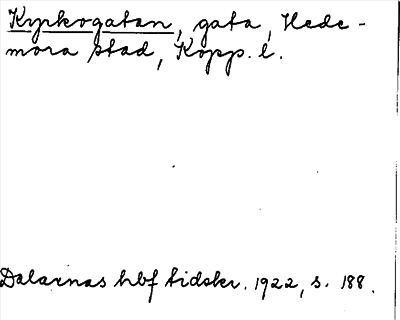 Kyrkogatan, gata, Hede-
mora stad, Kopp. l.
Dalarnas hbf tidskr. 1922, s. 188.